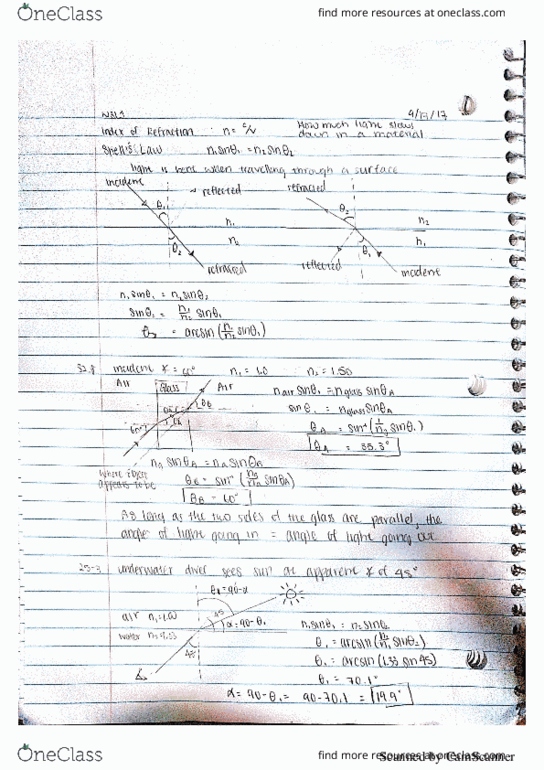 OneClass
find more resources at oneclass.com
9/13/17
Index of Refraction : n = c/v
How much light slows
down in a material
Snell's Law n₁sinθ₁ = n₂sinθ₂
light is bent when travelling through a surface
incident
reflected
refracted
θ₁
n₁
n₂
θ₂
refracted
θ₂
n₂
n₁
θ₁
reflected
incident
n₁sinθ₁ = n₂sinθ₂
sinθ₂ = n₁/n₂ sinθ₁
θ₂ = arcsin(n₁/n₂ sinθ₁)
incident ∡ = 60° n₁ = 1.0 n₂ = 1.50
Air Glass Air
n air sinθ₁ = n glass sinθA
sinθ₁ = n glass sinθA
θA = 35.3°
where object
appears to be
θB = 60°
As long as the two sides of the glass are parallel, the
angle of light going in = angle of light going out
25-3 underwater diver sees sun at apparent ∡ of 45°
θ₁ = 90-α
air n₁=1.00
water n₂=1.33
45
α = 90-θ₁
45
n₁sinθ₁ = n₂sinθ₂
θ₁ = arcsin(n₂/n₁ sinθ₂)
θ₁ = arcsin(1.33 sin 45)
θ₁ = 70.1°
α = 90-θ₁ = 90-70.1 = 19.9°
OneClass
find more resources at oneclass.com
Scanned by CamScanner